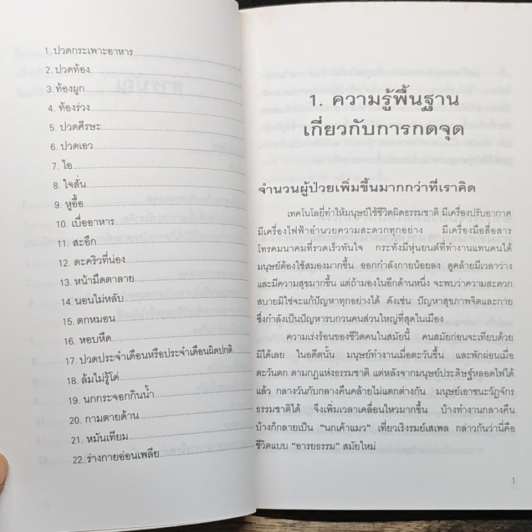 1. ปวดกระเพาะอาหาร
2. ปวดท้อง
3. ท้องผูก
4. ท้องร่วง
5. ปวดศีรษะ
6. ปวดเอว
7. ไอ
8. ใจสั่น
9. หูอื้อ
10. เบื่ออาหาร
11. สะอึก
12. ตะคริวที่น่อง
13. หน้ามืดตาลาย
14. นอนไม่หลับ
15. ตกหมอน
16. หอบหืด
17. ปวดประจำเดือนหรือประจำเดือนผิดปกติ
18. ล้มไม่รู้โด่
19. นกกระจอกกินน้ำ
20. กามตายด้าน
21. หมันเทียม
22. ร่างกายอ่อนเพลีย
1. ความรู้พื้นฐาน
เกี่ยวกับการกดจุด
จำนวนผู้ป่วยเพิ่มขึ้นมากกว่าที่เราคิด
เทคโนโลยี่ทำให้มนุษย์ใช้ชีวิตผิดธรรมชาติ มีเครื่องปรับอากาศ
มีเครื่องไฟฟ้าอำนวยความสะดวกทุกอย่าง มีเครื่องมือสื่อสาร
โทรคมนาคมที่รวดเร็วทันใจ กระทั่งมีหุ่นยนต์ที่ทำงานแทนคนได้
มนุษย์ต้องใช้สมองมากขึ้น ออกกำลังกายน้อยลง ดูคล้ายมีเวลาว่าง
และมีความสุขมากขึ้น แต่ถ้ามองในอีกด้านหนึ่ง จะพบว่าความสะดวก
สบายมิใช่จะแก้ปัญหาทุกอย่างได้ ดังเช่น ปัญหาสุขภาพจิตและกาย
ซึ่งกำลังเป็นปัญหารบกวนคนส่วนใหญ่ที่สุดในเมือง
ความเร่งร้อนของชีวิตคนในสมัยนี้ คนสมัยก่อนจะเทียบด้วย
มิได้เลย ในอดีตนั้น มนุษย์ทำงานเมื่อตะวันขึ้น และพักผ่อนเมื่อ
ตะวันตก ตามกฎแห่งธรรมชาติ แต่หลังจากมนุษย์ประดิษฐ์หลอดไฟได้
แล้ว กลางวันกับกลางคืนคล้ายไม่แตกต่างกัน มนุษย์เอาชนะวัฏจักร
ธรรมชาติได้ จึงเพิ่มเวลาเคลื่อนไหวมากขึ้น บ้างทำงานกลางคืน
บ้างก็กลายเป็น "นกเค้าแมว" เที่ยวเริงรมย์เสเพล กล่าวกันว่านี่คือ
ชีวิตแบบ "อารยธรรม" สมัยใหม่
1